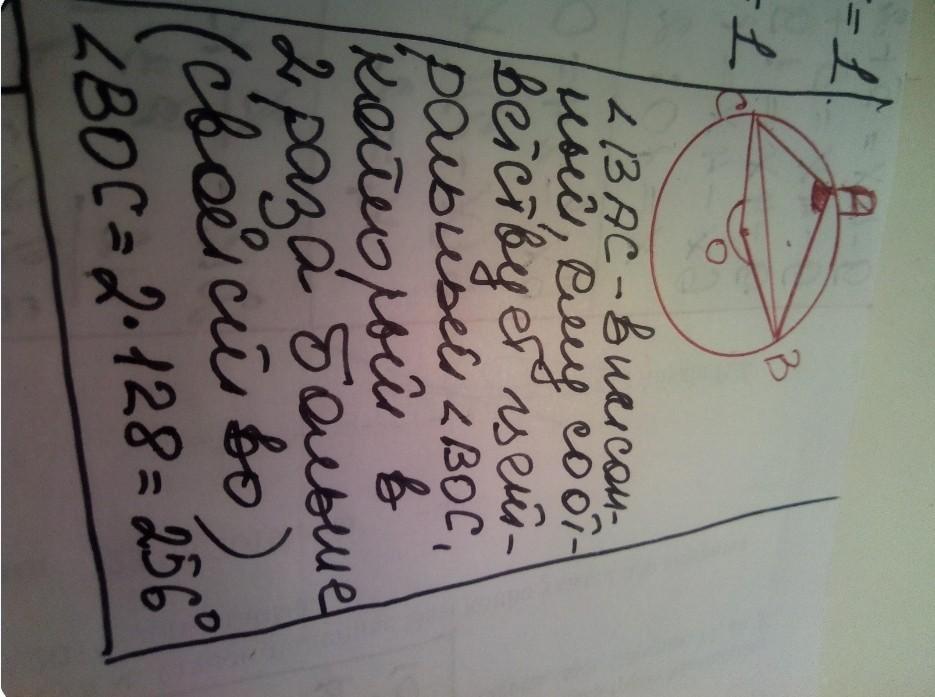 = 1
= 1
C
A
O
B
∠BAC - вписан-
ный, ему соот-
ветствует цент-
ральный ∠BOC,
который в
2 раза больше
(свойство)
∠BOC = 2·128 = 256°